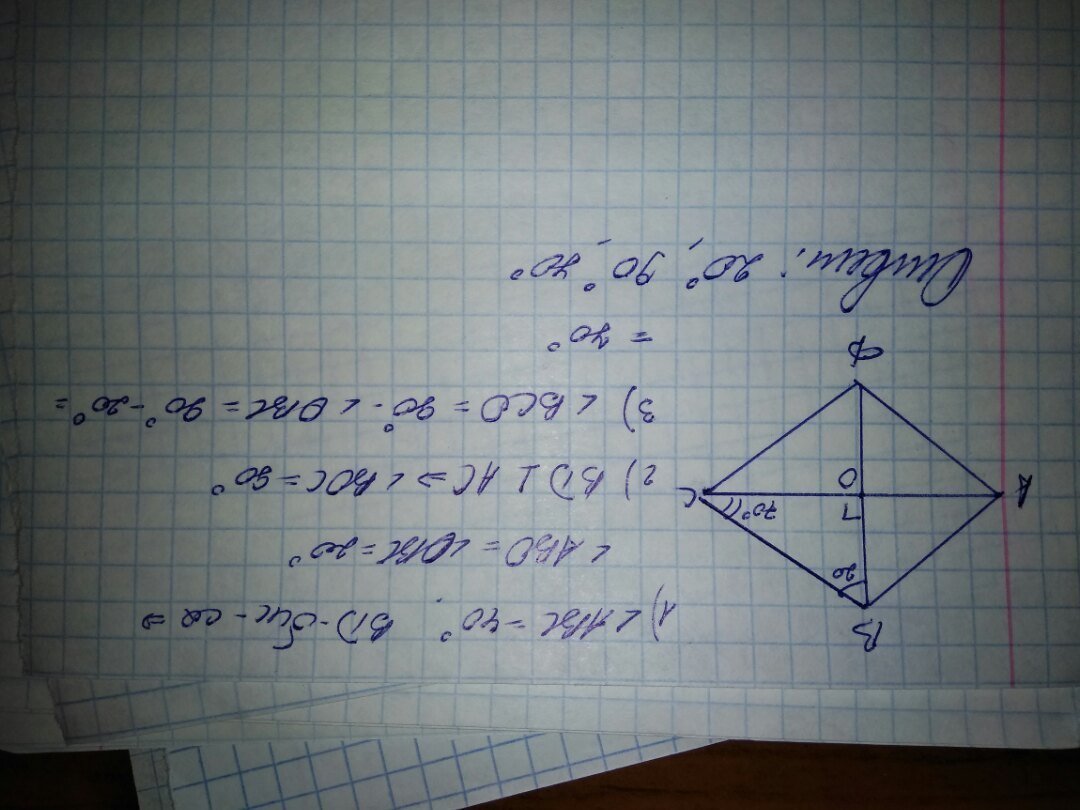 B
20
A
O
70°
C
D
1) ∠ABC = 40°, BD - бис-са ⇒
∠ABO = ∠OBC = 20°
2) BD ⊥ AC ⇒ ∠BOC = 90°
3) ∠BCO = 90° - ∠OBC = 90° - 20° =
= 70°
Ответ: 20°, 90°, 70°